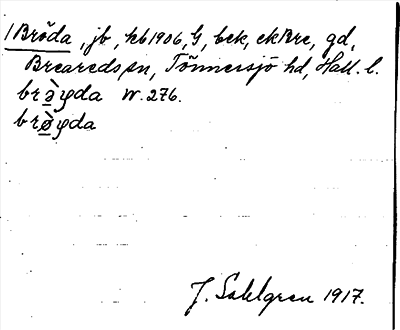 1 Bröda, jb, kb 1906, G, bek, ekBre, gd,
Breareds sn, Tönnersjö hd, Hall. l.
brə̀φda W. 276.
brø̀φda
J. Sahlgren 1917.